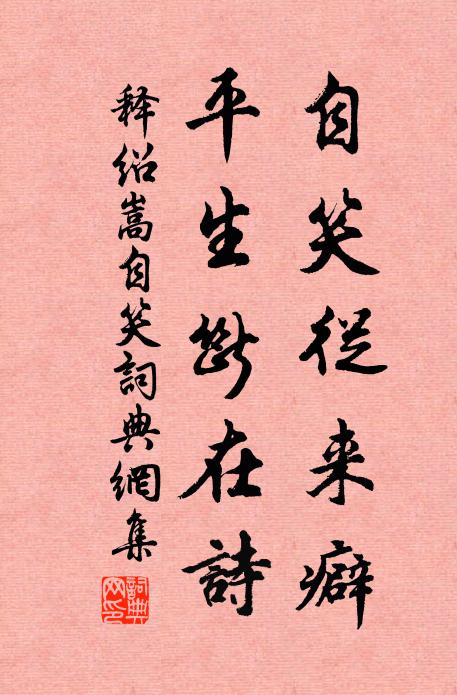 自笑從来癖
平生斷在詩
释绍嵩自笑詞典網集
詞典网印